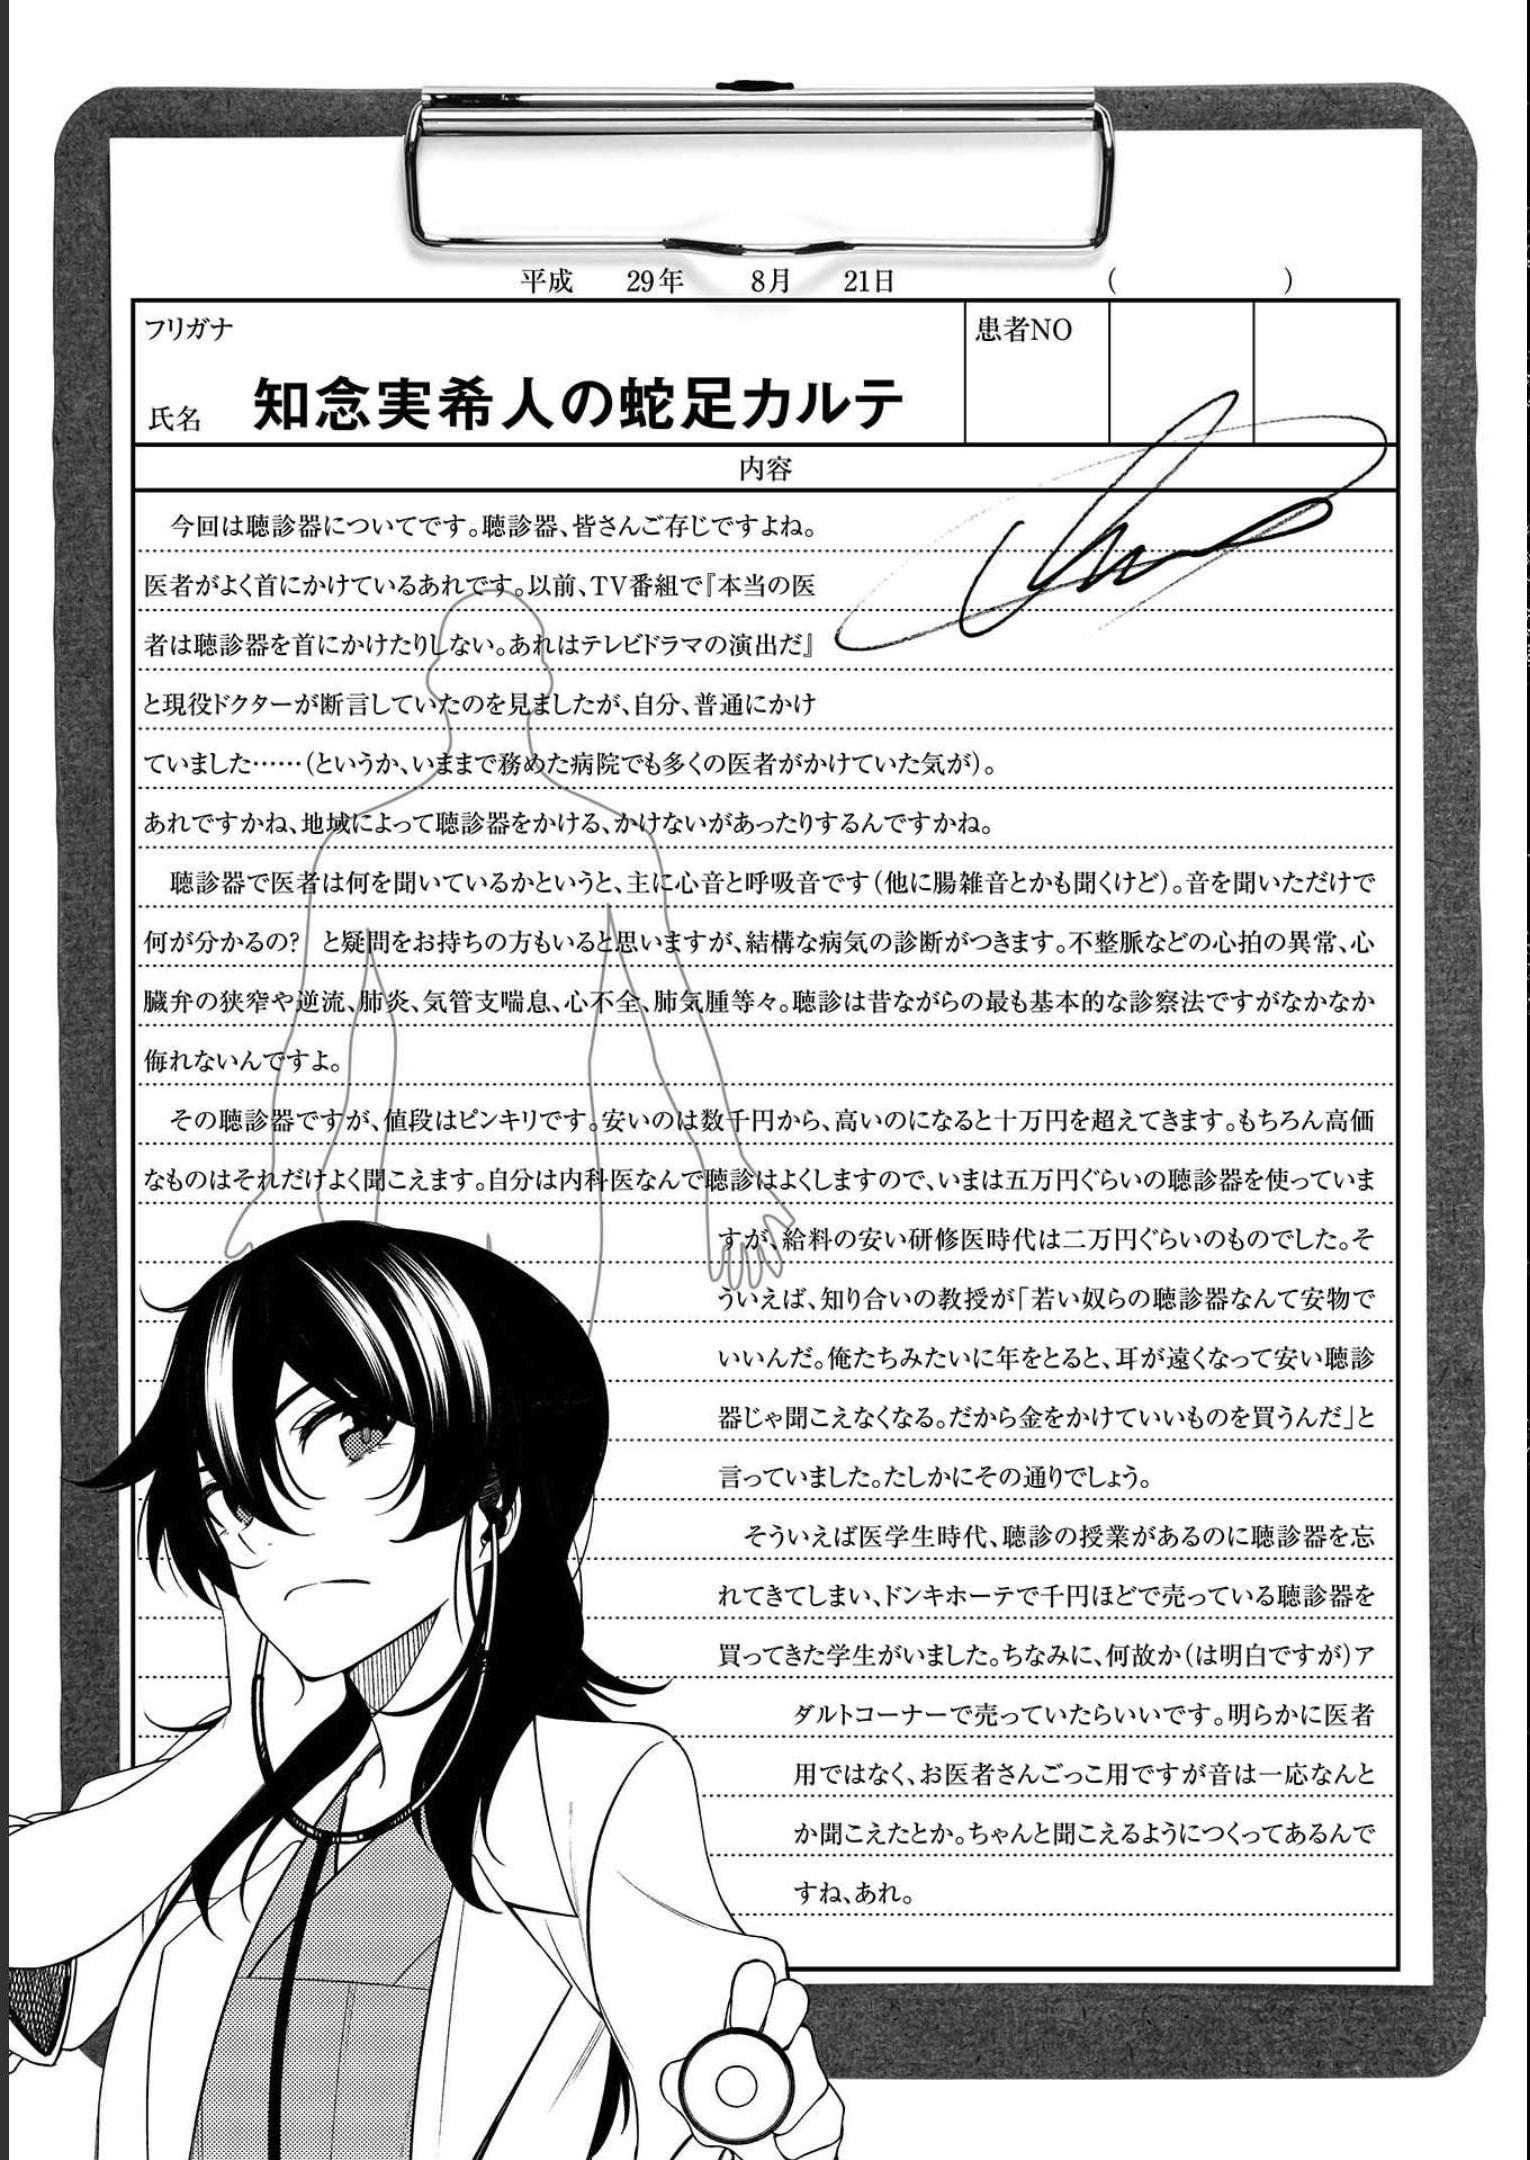 平成 29年 8月 21日 ( )
フリガナ
患者NO
氏名 知念実希人の蛇足カルテ
内容
今回は聴診器についてです。聴診器、皆さんご存じですよね。
医者がよく首にかけているあれです。以前、TV番組で『本当の医
者は聴診器を首にかけたりしない。あれはテレビドラマの演出だ』
と現役ドクターが断言していたのを見ましたが、自分、普通にかけ
ていました……（というか、いままで務めた病院でも多くの医者がかけていた気が）。
あれですかね、地域によって聴診器をかける、かけないがあったりするんですかね。
聴診器で医者は何を聞いているかというと、主に心音と呼吸音です（他に腸雑音とかも聞くけど）。音を聞いただけで
何が分かるの?　と疑問をお持ちの方もいると思いますが、結構な病気の診断がつきます。不整脈などの心拍の異常、心
臓弁の狭窄や逆流、肺炎、気管支喘息、心不全、肺気腫等々。聴診は昔ながらの最も基本的な診察法ですがなかなか
侮れないんですよ。
その聴診器ですが、値段はピンキリです。安いのは数千円から、高いのになると十万円を超えてきます。もちろん高価
なものはそれだけよく聞こえます。自分は内科医なんで聴診はよくしますので、いまは五万円ぐらいの聴診器を使っていま
すが、給料の安い研修医時代は二万円ぐらいのものでした。そ
ういえば、知り合いの教授が「若い奴らの聴診器なんて安物で
いいんだ。俺たちみたいに年をとると、耳が遠くなって安い聴診
器じゃ聞こえなくなる。だから金をかけていいものを買うんだ」と
言っていました。たしかにその通りでしょう。
そういえば医学生時代、聴診の授業があるのに聴診器を忘
れてきてしまい、ドンキホーテで千円ほどで売っている聴診器を
買ってきた学生がいました。ちなみに、何故か（は明白ですが）ア
ダルトコーナーで売っていたらいいです。明らかに医者
用ではなく、お医者さんごっこ用ですが音は一応なんと
か聞こえたとか。ちゃんと聞こえるようにつくってあるんで
すね、あれ。